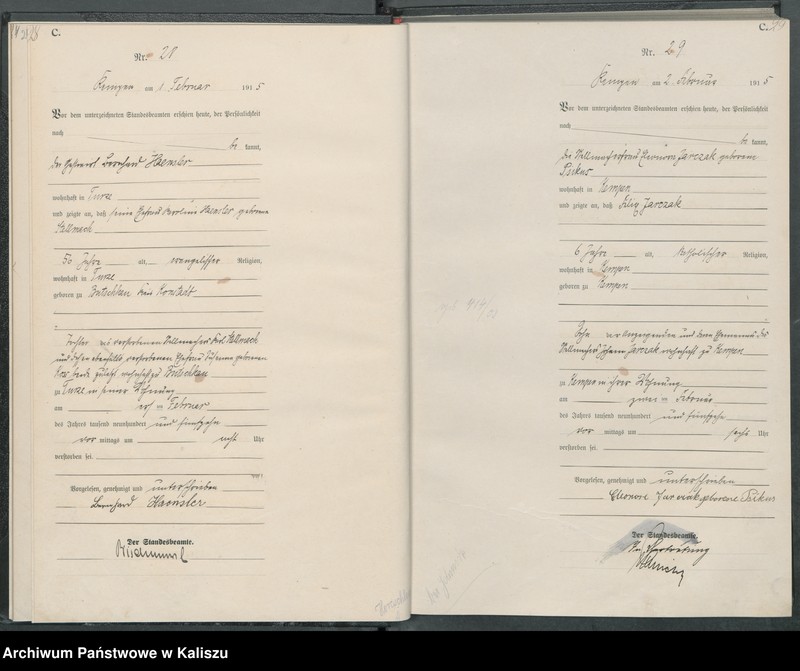 C.
Nr. 28
Kempen am 1. Februar 1915
Vor dem unterzeichneten Standesbeamten erschien heute, der Persönlichkeit
nach be kannt,
Bernhard Haensler
wohnhaft in Turze
und zeigte an, daß seine Ehefrau Karoline Haensler geborene
Stellmach
50 Jahre alt, evangelischer Religion,
wohnhaft in Turze
geboren zu Kreis Konstadt
Tochter des verstorbenen Stellmachers Stellmach
und dessen ebenfalls verstorbenen Ehefrau Susanna geborenen
beide zuletzt wohnhaft zu
zu Turze in seiner Wohnung
am ersten Februar
des Jahres tausend neunhundert und fünfzehn
vor mittags um acht Uhr
verstorben sei.
Vorgelesen, genehmigt und unterschrieben
Bernhard Haensler
Der Standesbeamte.
C. 29
Nr. 29
Kempen am 2. Februar 1915
Vor dem unterzeichneten Standesbeamten erschien heute, der Persönlichkeit
nach be kannt,
die Stellmacherfrau Eleonore Jarczak geborene
Psikus
wohnhaft in Kempen
und zeigte an, daß Felix Jarczak
6 Jahre alt, katholischer Religion,
wohnhaft in Kempen
geboren zu Kempen
Sohn der Anzeigenden und deren Ehemannes des
Stellmachers Johann Jarczak wohnhaft zu Kempen
zu Kempen in ihrer Wohnung
am zweiten Februar
des Jahres tausend neunhundert und fünfzehn
vor mittags um sechs Uhr
verstorben sei.
Vorgelesen, genehmigt und unterschrieben
Eleonore Jarczak geborene Psikus
Der Standesbeamte.
In Vertretung
Archiwum Państwowe w Kaliszu